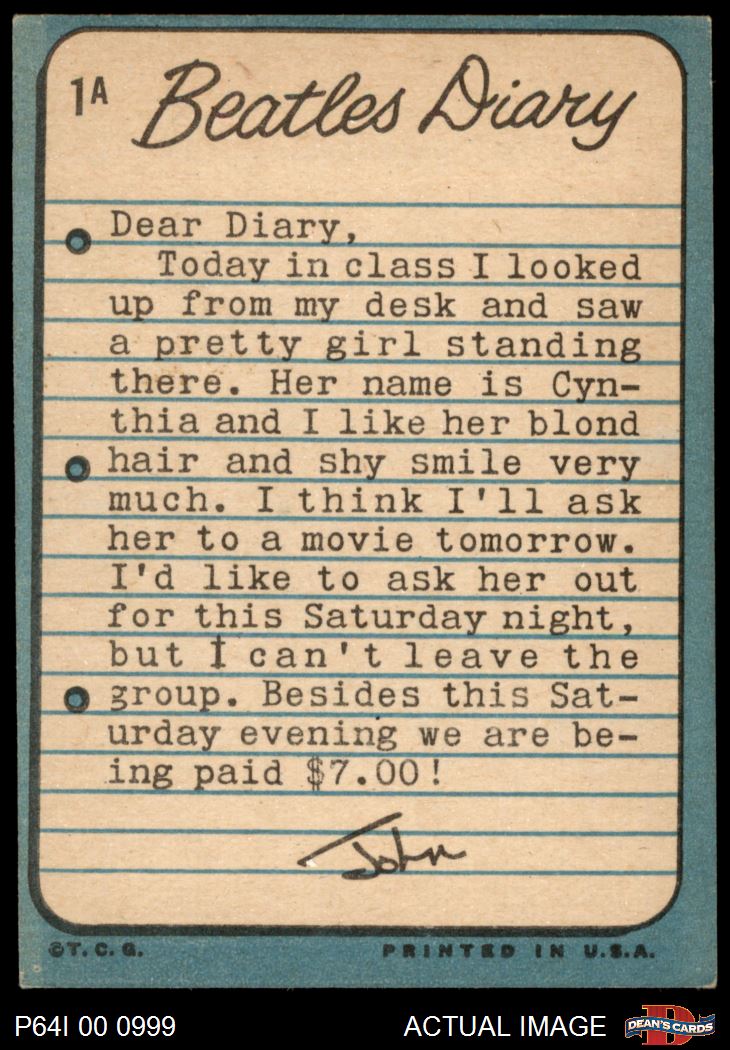 1A Beatles Diary
Dear Diary,
Today in class I looked
up from my desk and saw
a pretty girl standing
there. Her name is Cyn-
thia and I like her blond
hair and shy smile very
much. I think I'll ask
her to a movie tomorrow.
I'd like to ask her out
for this Saturday night,
but I can't leave the
group. Besides this Sat-
urday evening we are be-
ing paid $7.00!
John
©T. C. G. PRINTED IN U.S.A.
P64I 00 0999 ACTUAL IMAGE D DEAN'S CARDS